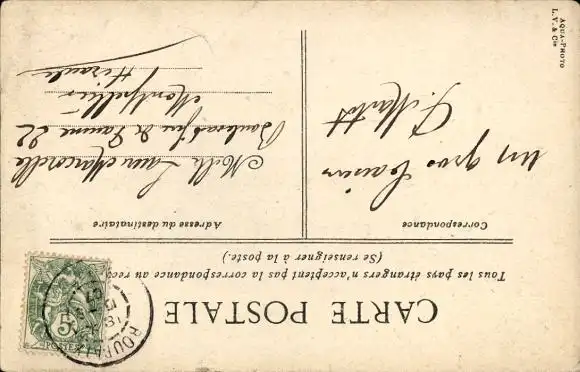 CARTE POSTALE
Tous les pays étrangers n'acceptent pas la correspondance au
(Se renseigner à la poste.)
Correspondance
Un gros baiser
Adresse du destinataire
Melle Laure
Boulevard jeu de Paume 22
Montpellier
Hérault
5c
POSTES
ROUBAIX
AQUA-PHOTO
L. V. & Cie